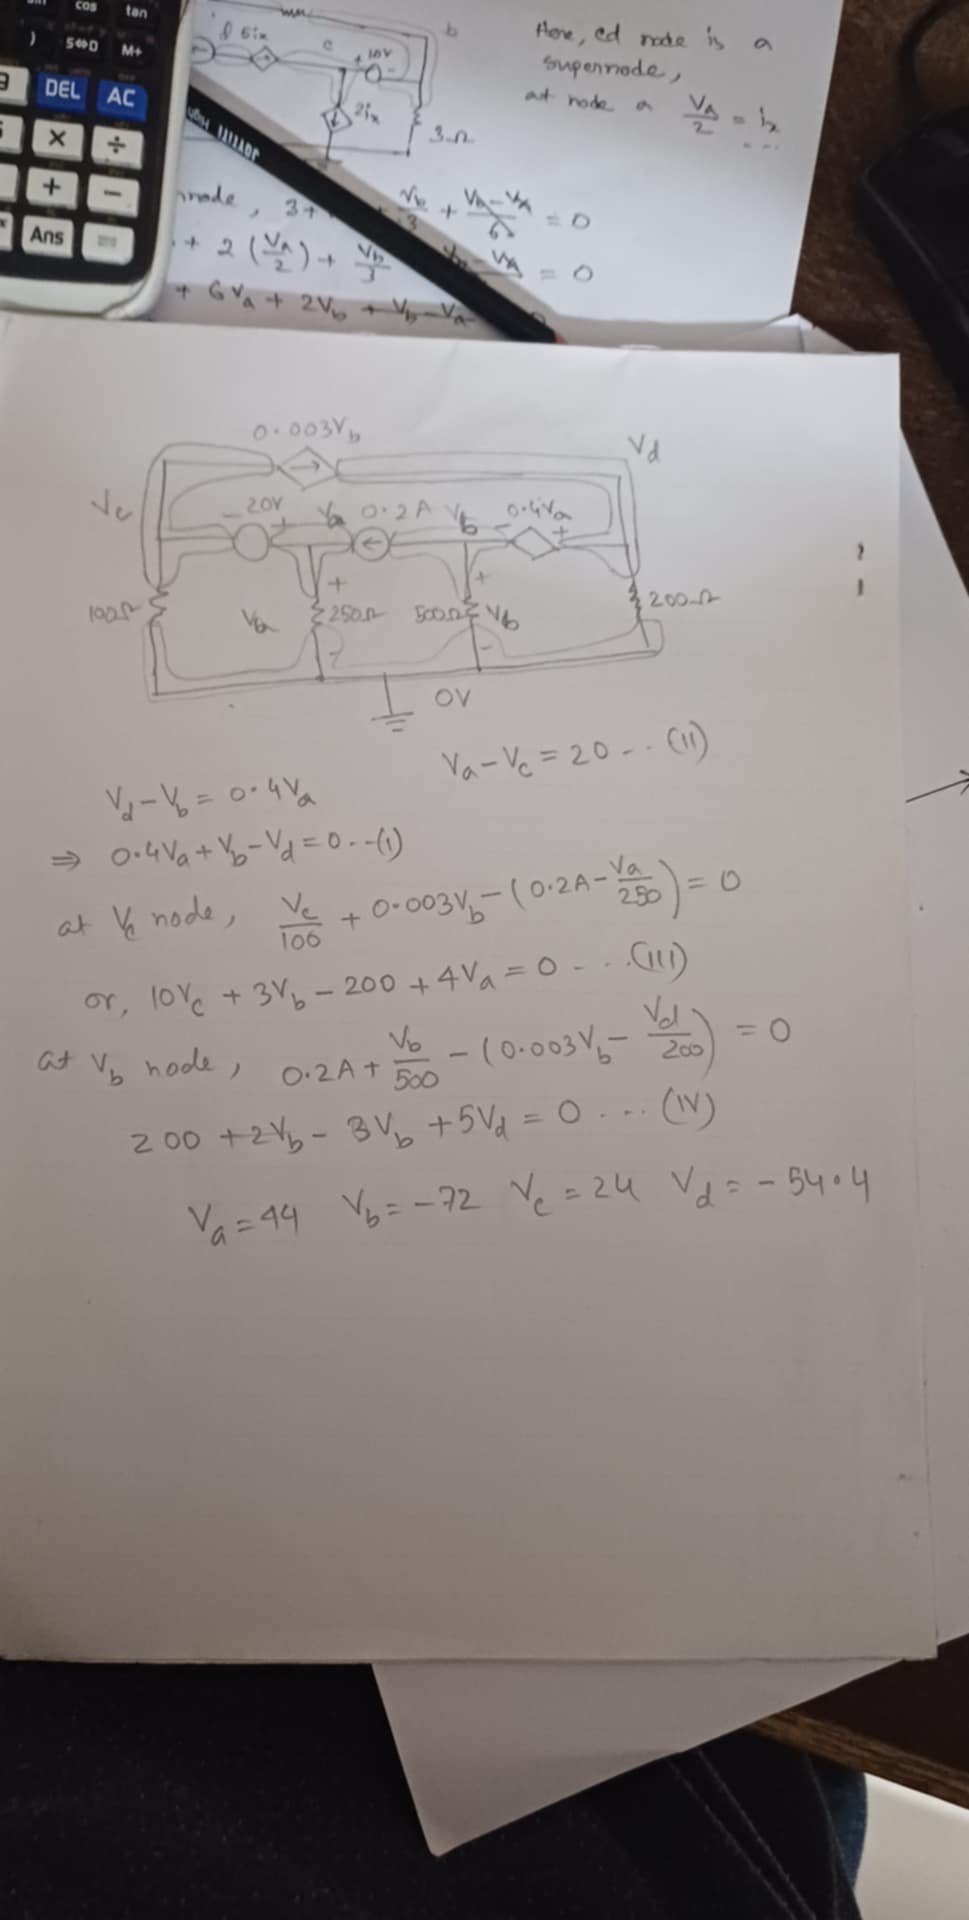 cos tan
) S⇔D M+
DEL AC
× ÷
+ −
Ans =
5ix c + 10V − b
2ix 3Ω
Here, cd node is a
supernode,
at node a VA/2 = ix
....
node, 3+ Vb/3 + Vb-VA/6 = 0
+ 2 (VA/2) + Vb/3 - VA = 0
+ 6Va + 2Vb + Vb-Va
0.003Vb
Vd
Vc − 20V + Va 0.2A Vb − 0.4Va +
100Ω Va + 250Ω − 500Ω + Vb − 200Ω
0V
Va-Vc = 20 .. (II)
Vd-Vb = 0.4Va
⇒ 0.4Va+Vb-Vd=0..(I)
at Vc node, Vc/100 + 0.003Vb-(0.2A-Va/250)=0
or, 10Vc + 3Vb - 200 + 4Va = 0 ....(III)
at Vb node, 0.2A+ Vb/500 - (0.003Vb- Vd/200) = 0
200 +2Vb- 3Vb +5Vd = 0 .... (IV)
Va=44 Vb=-72 Vc=24 Vd=-54.4